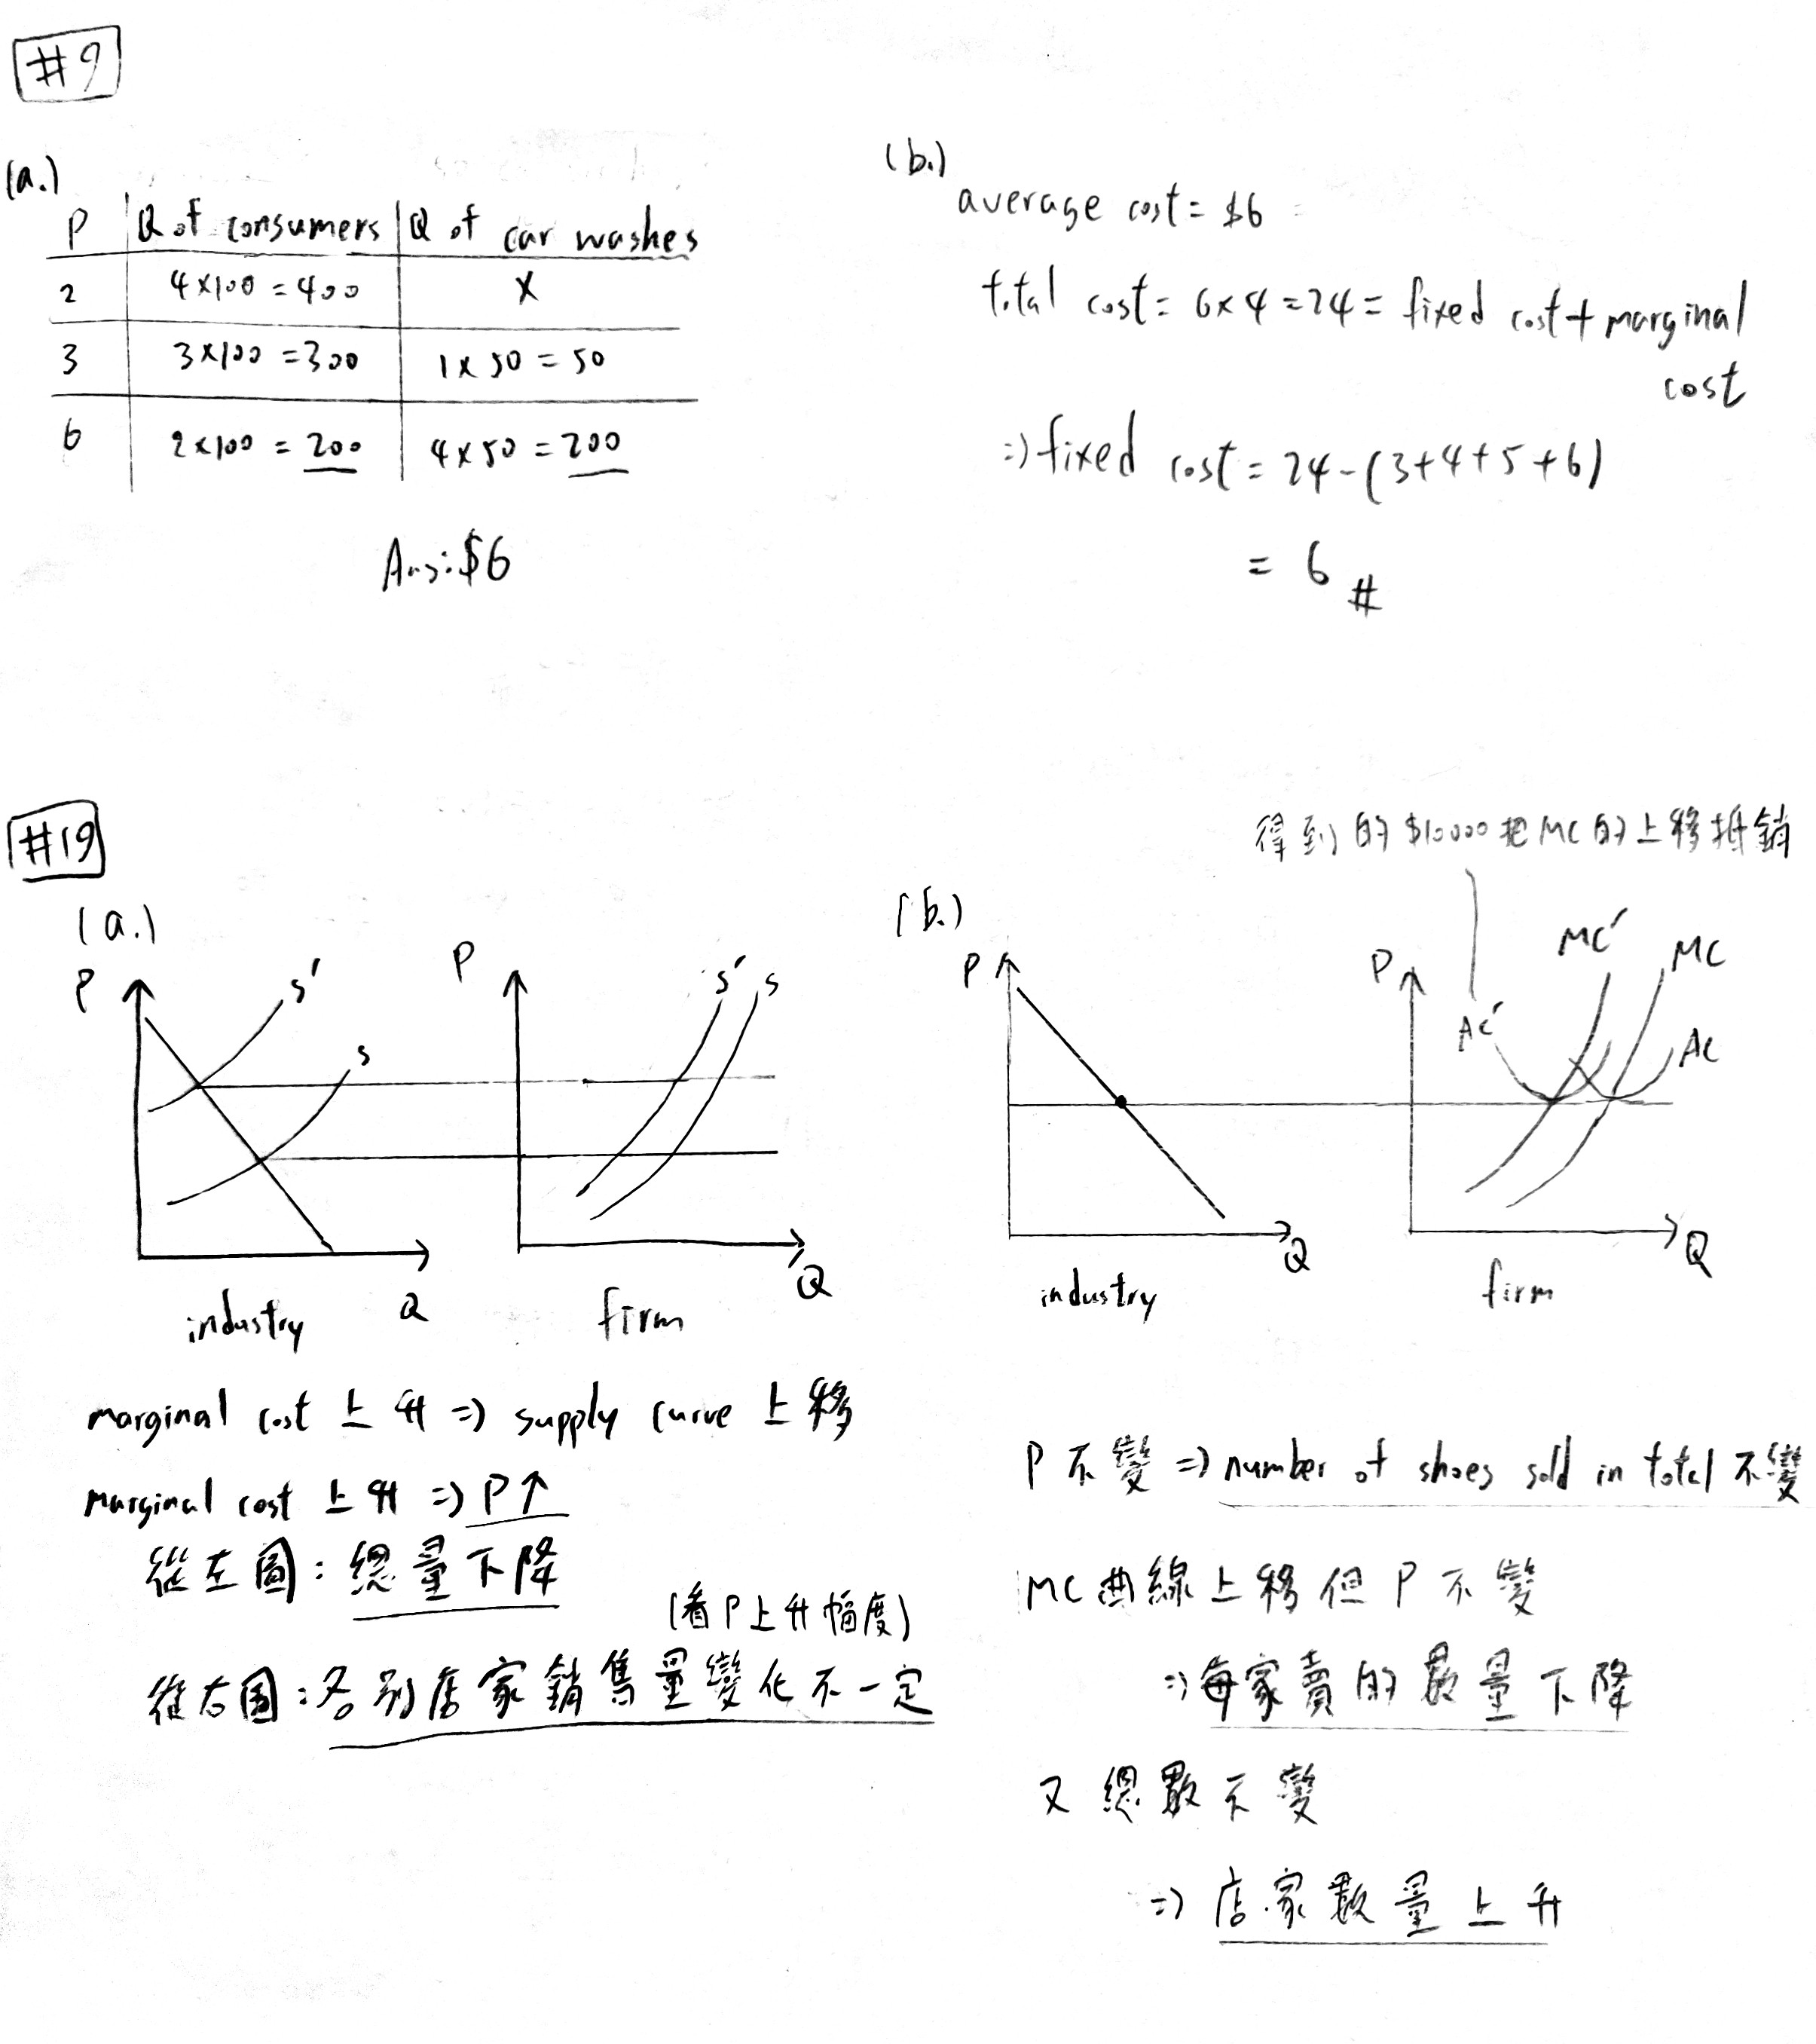 #9
(a.)
P | Q of consumers | Q of car washes
2 | 4×100=400 | X
3 | 3×100=300 | 1×50=50
6 | 2×100=200 | 4×50=200
Ans:$6
(b.)
average cost=$6
total cost=6×4=24=fixed cost+marginal
cost
⇒fixed cost=24-(3+4+5+6)
=6 #
#19
(a.)
P S' S
industry Q
P S' S
firm Q
marginal cost 上升⇒supply curve 上移
marginal cost 上升⇒P↑
從左圖:總量下降
(看P上升幅度)
從右圖:各別店家銷售量變化不一定
得到的$10000把MC的上移抵銷
(b.)
P
industry Q
P AC' MC' MC AC
firm Q
P不變⇒number of shoes sold in total不變
MC曲線上移但P不變
⇒每家賣的數量下降
又總數不變
⇒店家數量上升